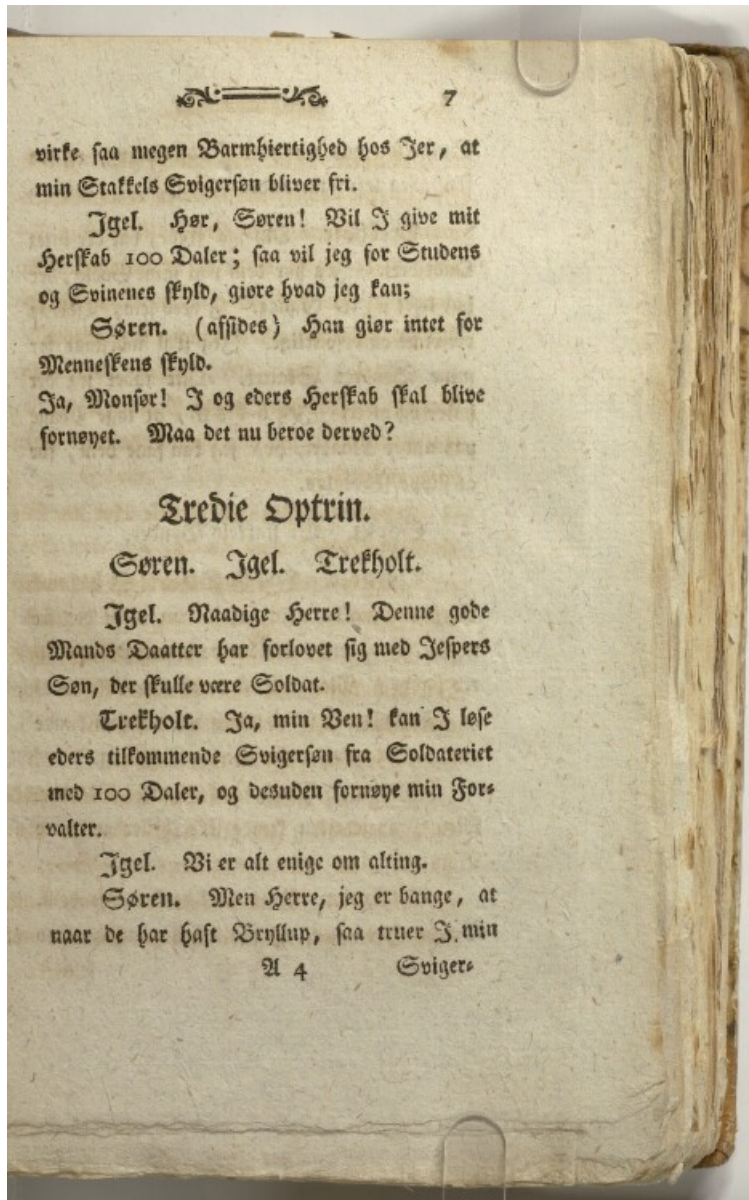 7
virke saa megen Barmhiertighed hos Jer, at
min Stakkels Svigersøn bliver fri.
Igel. Hør, Søren! Vil I give mit
Herskab 100 Daler; saa vil jeg for Studens
og Svinenes skyld, giøre hvad jeg kan;
Søren. (afsides) Han giør intet for
Menneskens skyld.
Ja, Monsør! I og eders Herskab skal blive
fornøyet. Maa det nu beroe derved?
Tredie Optrin.
Søren. Igel. Trekholt.
Igel. Naadige Herre! Denne gode
Mands Daatter har forlovet sig med Jespers
Søn, der skulle være Soldat.
Trekholt. Ja, min Ven! kan I løse
eders tilkommende Svigersøn fra Soldateriet
med 100 Daler, og desuden fornøye min For-
valter.
Igel. Vi er alt enige om alting.
Søren. Men Herre, jeg er bange, at
naar de har haft Bryllup, saa truer I min
A 4 Sviger-